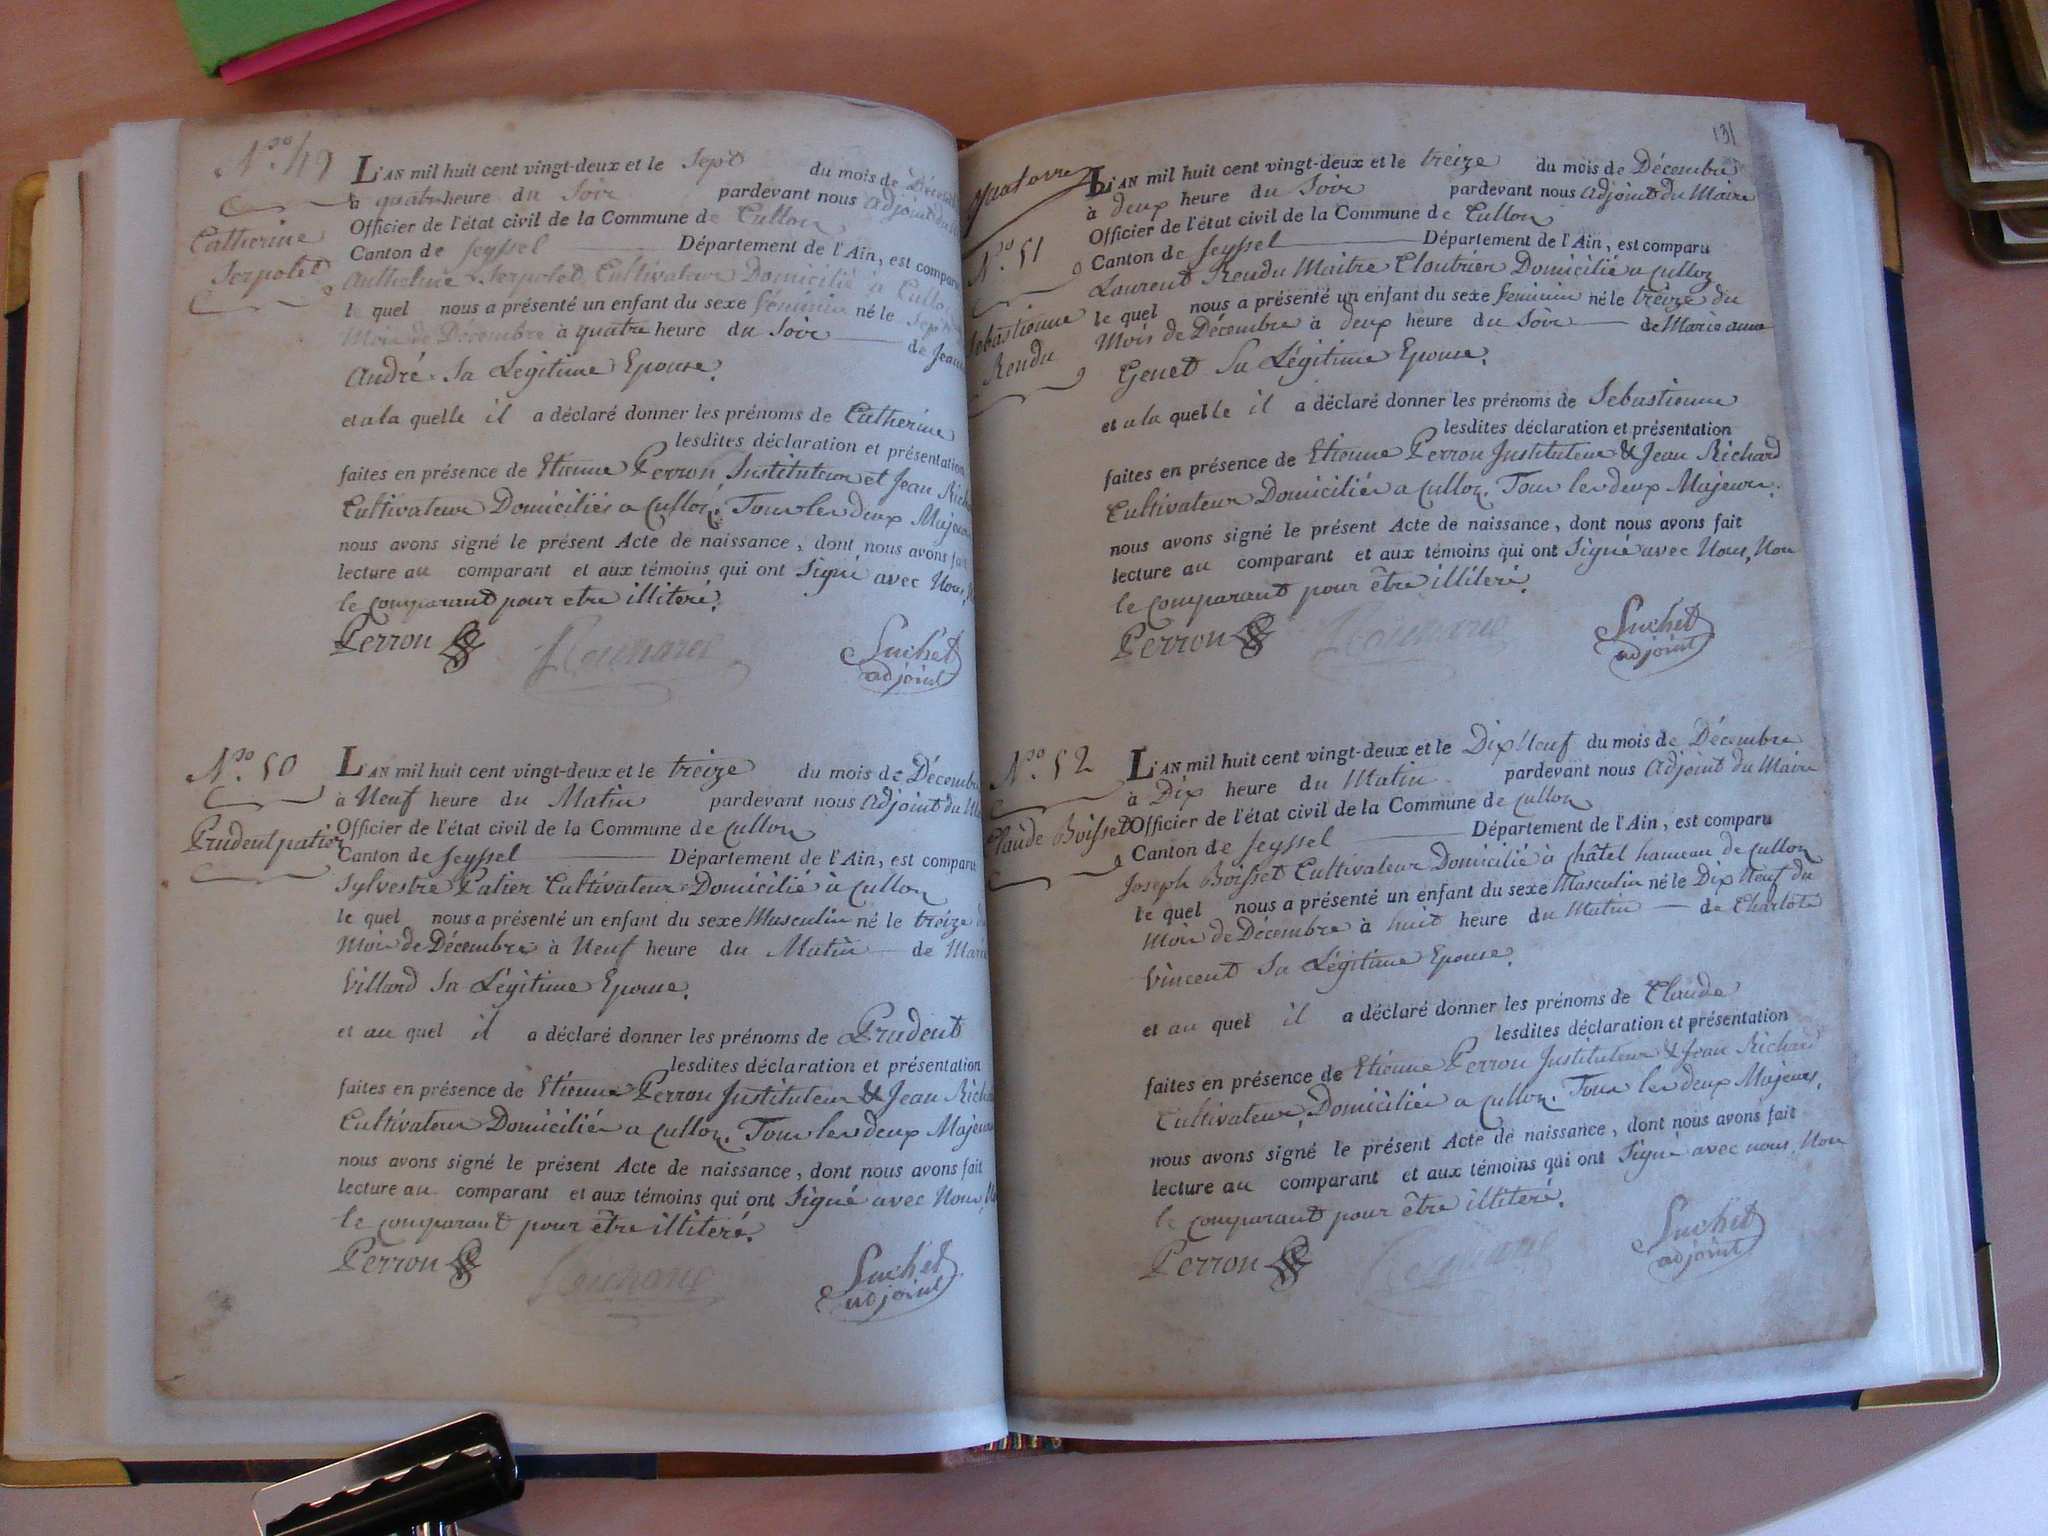 N.ro 49
Catherine
Serpolet
L'AN mil huit cent vingt-deux et le Sept du mois de
à quatre heure du Soir pardevant nous adjoint du
Officier de l'état civil de la Commune de Culloz
Canton de Seyssel Département de l'Ain, est comparu
Anthelme Serpolet Cultivateur Domicilié à Culloz
le quel nous a présenté un enfant du sexe féminin né le Sept
Mois de Décembre à quatre heure du Soir de Jeanne
André Sa Légitime Epouse.
et a la quelle il a déclaré donner les prénoms de Catherine
lesdites déclaration et présentation
faites en présence de Etienne Perron, Instituteur et Jean Richard
Cultivateur Domiciliés a Culloz. Tous les deux Majeurs
nous avons signé le présent Acte de naissance, dont nous avons fait
lecture au comparant et aux témoins qui ont Signé avec Nous,
le comparant pour etre illiteré.
Perron
Suchet
adjoint
N.ro 50
Prudent patier
L'AN mil huit cent vingt-deux et le treize du mois de Décembre
à Neuf heure du Matin pardevant nous adjoint du
Officier de l'état civil de la Commune de Culloz
Canton de Seyssel Département de l'Ain, est comparu
Sylvestre Patier Cultivateur Domicilié à Culloz
le quel nous a présenté un enfant du sexe Masculin né le treize
Mois de Décembre à Neuf heure du Matin de Marie
Villard Sa Légitime Epouse.
et au quel il a déclaré donner les prénoms de Prudent
lesdites déclaration et présentation
faites en présence de Etienne Perron Instituteur & Jean Richard
Cultivateur Domiciliés a Culloz. Tous les deux Majeurs
nous avons signé le présent Acte de naissance, dont nous avons fait
lecture au comparant et aux témoins qui ont Signé avec Nous,
le comparant pour être illiteré.
Perron
Suchet
adjoint
131
quatorze
N.ro 51
Sebastienne
Rendu
L'AN mil huit cent vingt-deux et le treize du mois de Décembre
à deux heure du Soir pardevant nous adjoint du Maire
Officier de l'état civil de la Commune de Culloz
Canton de Seyssel Département de l'Ain, est comparu
Laurent Rendu Maitre Cloutrier Domicilié a Culloz
le quel nous a présenté un enfant du sexe feminin né le treize du
Mois de Décembre à deux heure du Soir de Marie anne
Genet Sa Légitime Epouse.
et a la quelle il a déclaré donner les prénoms de Sebastienne
lesdites déclaration et présentation
faites en présence de Etienne Perron Instituteur & Jean Richard
Cultivateur Domiciliés a Culloz. Tous les deux Majeurs.
nous avons signé le présent Acte de naissance, dont nous avons fait
lecture au comparant et aux témoins qui ont Signé avec Nous, Non
le comparant pour être illiteré.
Perron
Suchet
adjoint
N.ro 52
Claude Boisset
L'AN mil huit cent vingt-deux et le Dix Neuf du mois de Décembre
à Dix heure du Matin pardevant nous adjoint du Maire
Officier de l'état civil de la Commune de Culloz
Canton de Seyssel Département de l'Ain, est comparu
Joseph Boisset Cultivateur Domicilié à châtel hameau de Culloz
le quel nous a présenté un enfant du sexe Masculin né le Dix Neuf du
Mois de Décembre à huit heure du Matin de Charlote
Vincent Sa Légitime Epouse.
et au quel il a déclaré donner les prénoms de Claude
lesdites déclaration et présentation
faites en présence de Etienne Perron Instituteur & Jean Richard
Cultivateur, Domiciliés a Culloz. Tous les deux Majeurs,
nous avons signé le présent Acte de naissance, dont nous avons fait
lecture au comparant et aux témoins qui ont Signé avec nous, Non
le comparant pour être illiteré.
Perron
Suchet
adjoint